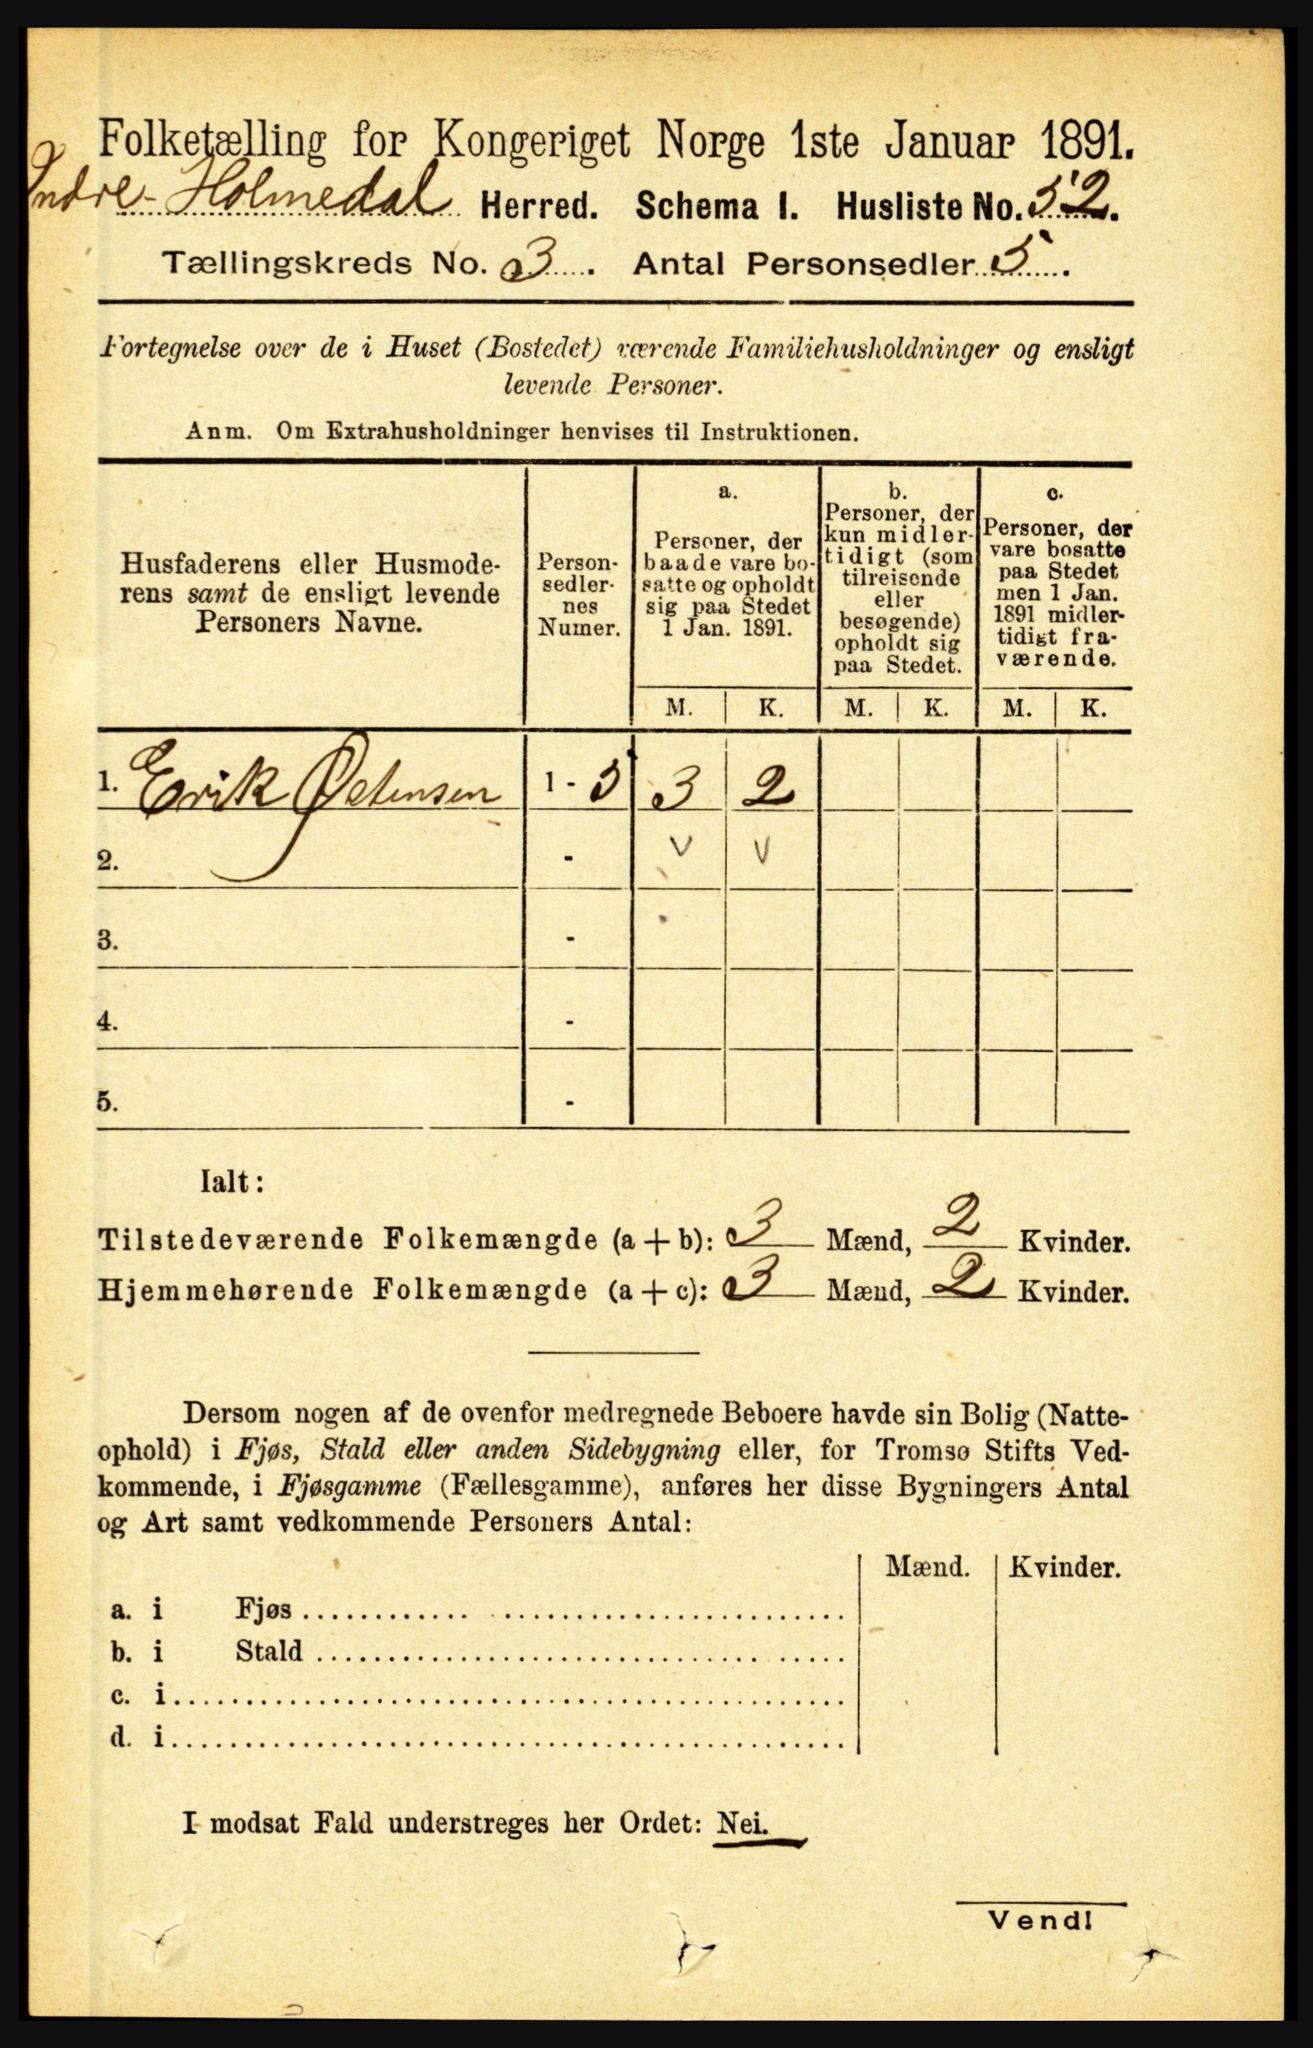 Folketælling for Kongeriget Norge 1ste Januar 1891.
Indre Holmedal Herred. Schema I. Husliste No. 52.
Tællingskreds No. 3. Antal Personsedler 5.
Fortegnelse over de i Huset (Bostedet) værende Familiehusholdninger og ensligt
levende Personer.
Anm. Om Extrahusholdninger henvises til Instruktionen.
Husfaderens eller Husmode-
rens samt de ensligt levende
Personers Navne.
Person-
sedler-
nes
Numer.
a.
Personer, der
baade vare bo-
satte og opholdt
sig paa Stedet
1 Jan. 1891.
b.
Personer, der
kun midler-
tidigt (som
tilreisende
eller
besøgende)
opholdt sig
paa Stedet.
c.
Personer, der
vare bosatte
paa Stedet
men 1 Jan.
1891 midler-
tidigt fra-
værende.
M. K. M. K. M. K.
1. Erik Østensen 1 - 5 3 2
2. - v v
3. -
4. -
5. -
Ialt:
Tilstedeværende Folkemængde (a + b): 3 Mænd, 2 Kvinder.
Hjemmehørende Folkemængde (a + c): 3 Mænd, 2 Kvinder.
Dersom nogen af de ovenfor medregnede Beboere havde sin Bolig (Natte-
ophold) i Fjøs, Stald eller anden Sidebygning eller, for Tromsø Stifts Ved-
kommende, i Fjøsgamme (Fællesgamme), anføres her disse Bygningers Antal
og Art samt vedkommende Personers Antal:
Mænd. Kvinder.
a. i Fjøs
b. i Stald
c. i
d. i
I modsat Fald understreges her Ordet: Nei.
Vend!